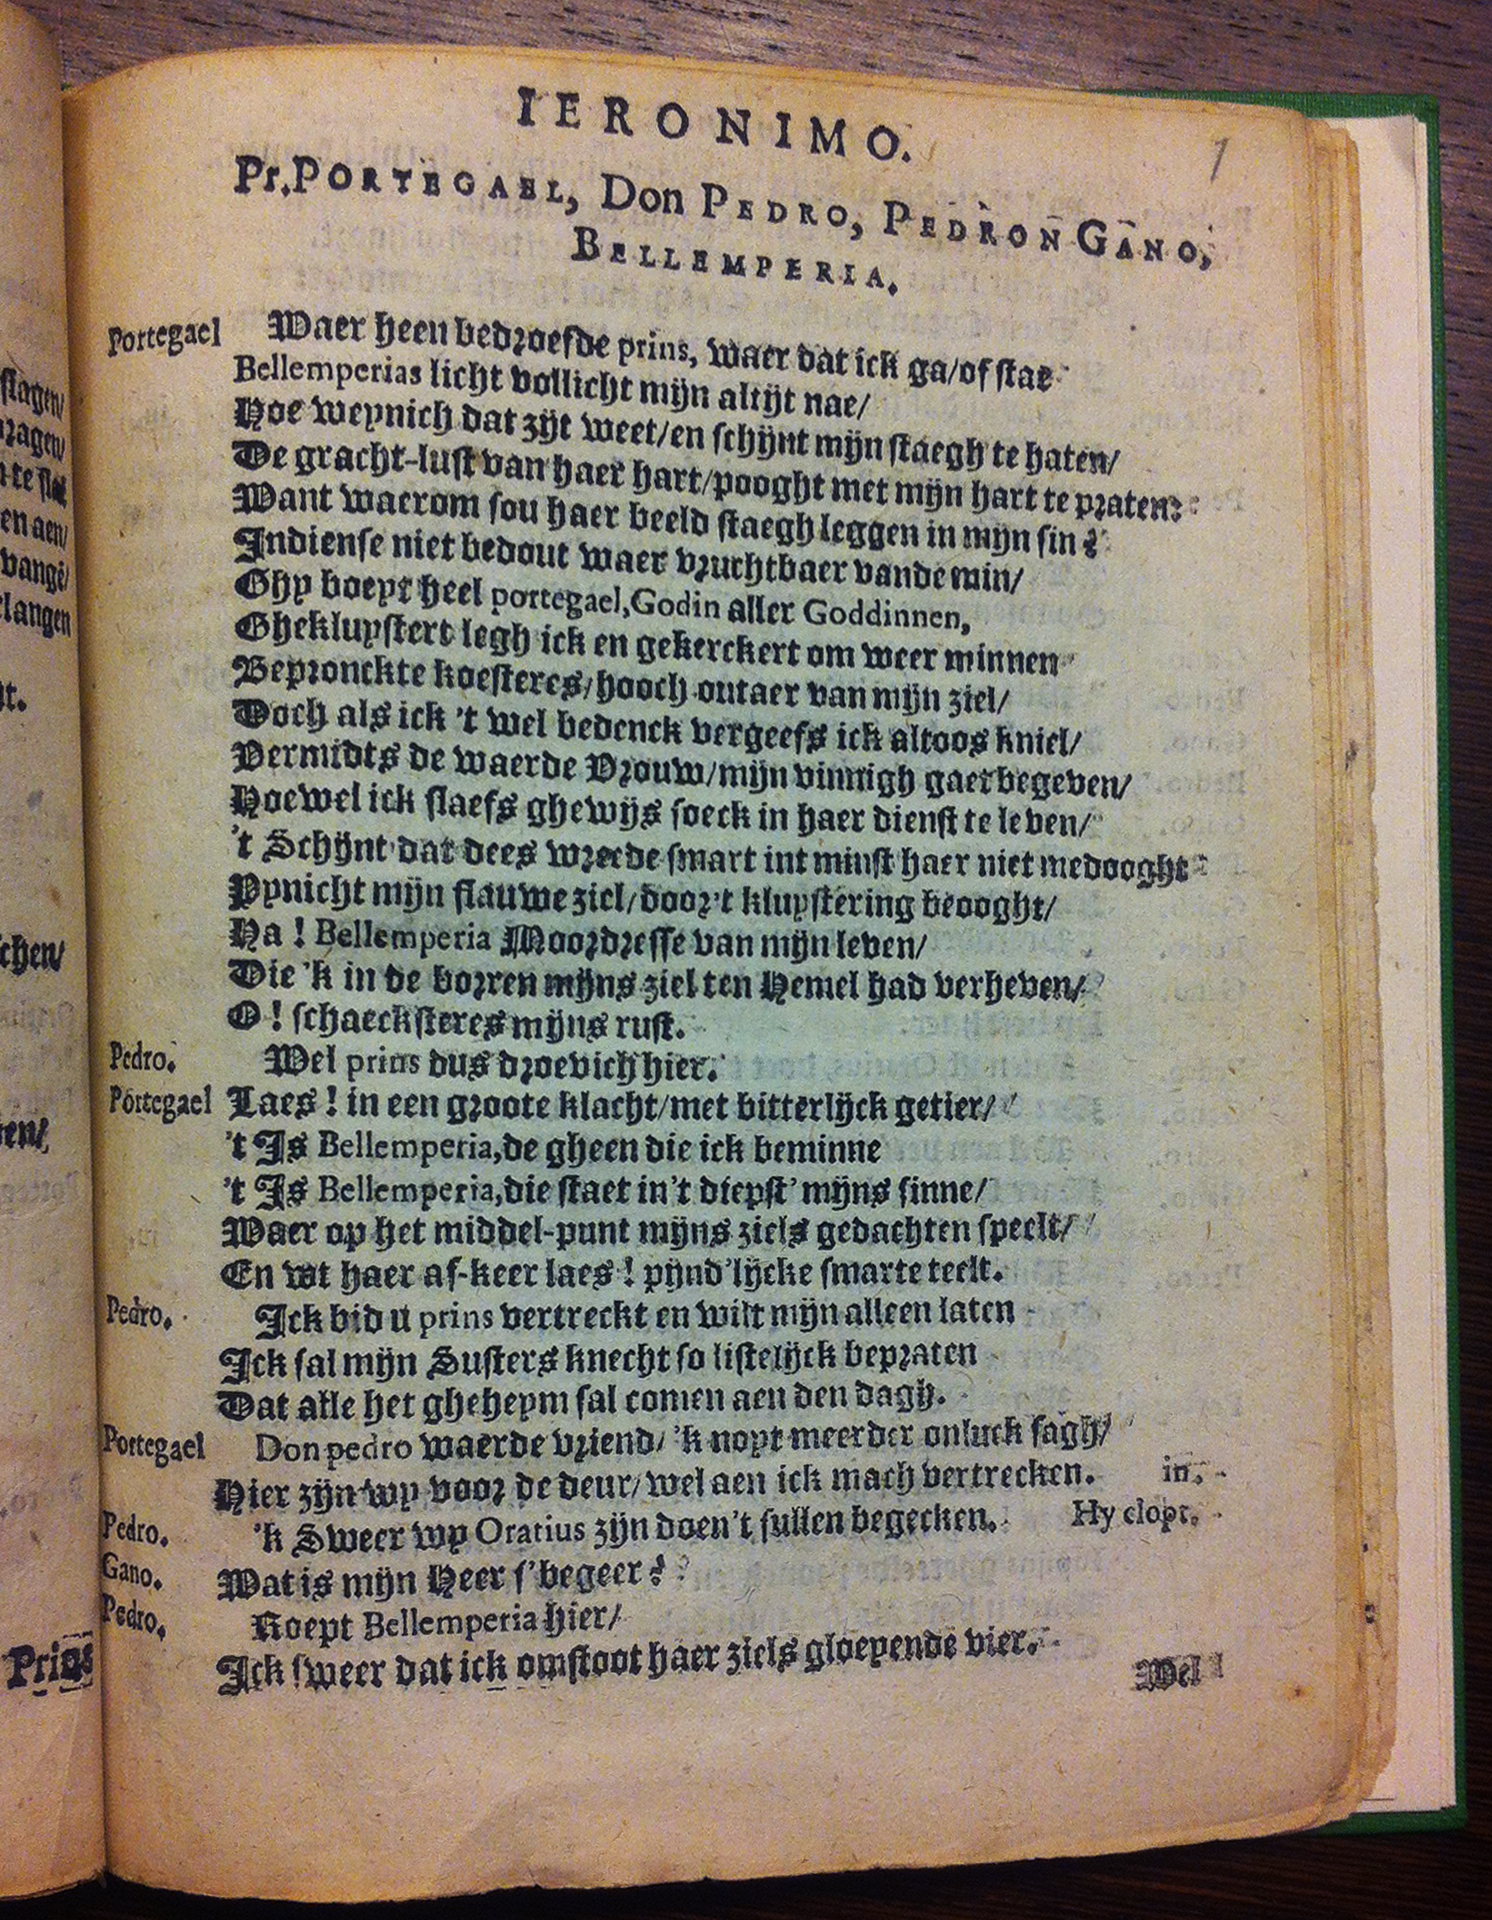 IERONIMO.
1
Pr. PORTEGAEL, Don PEDRO, PEDRON GANO,
BELLEMPERIA.
Portegael Waer heen bedroefde prins, waer dat ick ga/of stae
Bellemperias licht vollicht mijn altijt nae/
Hoe weynich dat zijt weet/en schijnt mijn staegh te haten/
De gracht-lust van haer hart/pooght met mijn hart te praten:
Want waerom sou haer beeld staegh leggen in mijn sin?
Indiense niet bedout waer vruchtbaer vande min/
Ghy boeyt heel portegael, Godin aller Goddinnen,
Ghekluystert legh ick en gekerckert om weer minnen
Bepronckte koesteres/hooch outaer van mijn ziel/
Doch als ick 't wel bedenck vergeefs ick altoos kniel/
Vermidts de waerde Vrouw/mijn vinnigh gaet begeven/
Hoewel ick slaefs ghewijs soeck in haer dienst te leven/
't Schijnt dat dees wreede smart int minst haer niet medooght
Pynicht mijn flauwe ziel/door 't kluystering beooght/
Ha! Bellemperia Moordresse van mijn leven/
Die 'k in de borren mijns ziel ten Hemel had verheven/
O! schaecksteres mijns rust.
Pedro. Wel prins dus droevich hier.
Portegael Laes! in een groote klacht/met bitterlijck getier/
't Is Bellemperia, de gheen die ick beminne
't Is Bellemperia, die staet in 't diepst' mijns sinne/
Waer op het middel-punt mijns ziels gedachten speelt/
En wt haer af-keer laes! pijnd'lijcke smarte teelt.
Pedro. Ick bid u prins vertreckt en wilt mijn alleen laten
Ick sal mijn Susters knecht so listelijck bepraten
Dat alle het gheheym sal comen aen den dagh.
Portegael Don pedro waerde vriend/ 'k noyt meerder onluck sagh/
Hier zijn wy voor de deur/wel aen ick mach vertrecken. in.
Pedro. 'k Sweer wy Oratius zijn doen 't sullen begecken. Hy clopt.
Gano. Wat is mijn Heer s'begeer?
Pedro. Roept Bellemperia hier/
Ick sweer dat ick omstoot haer ziels gloeyende vier.
Wel
slagen/
ragen/
en aen/
vangē/
langen
chen/
Prins